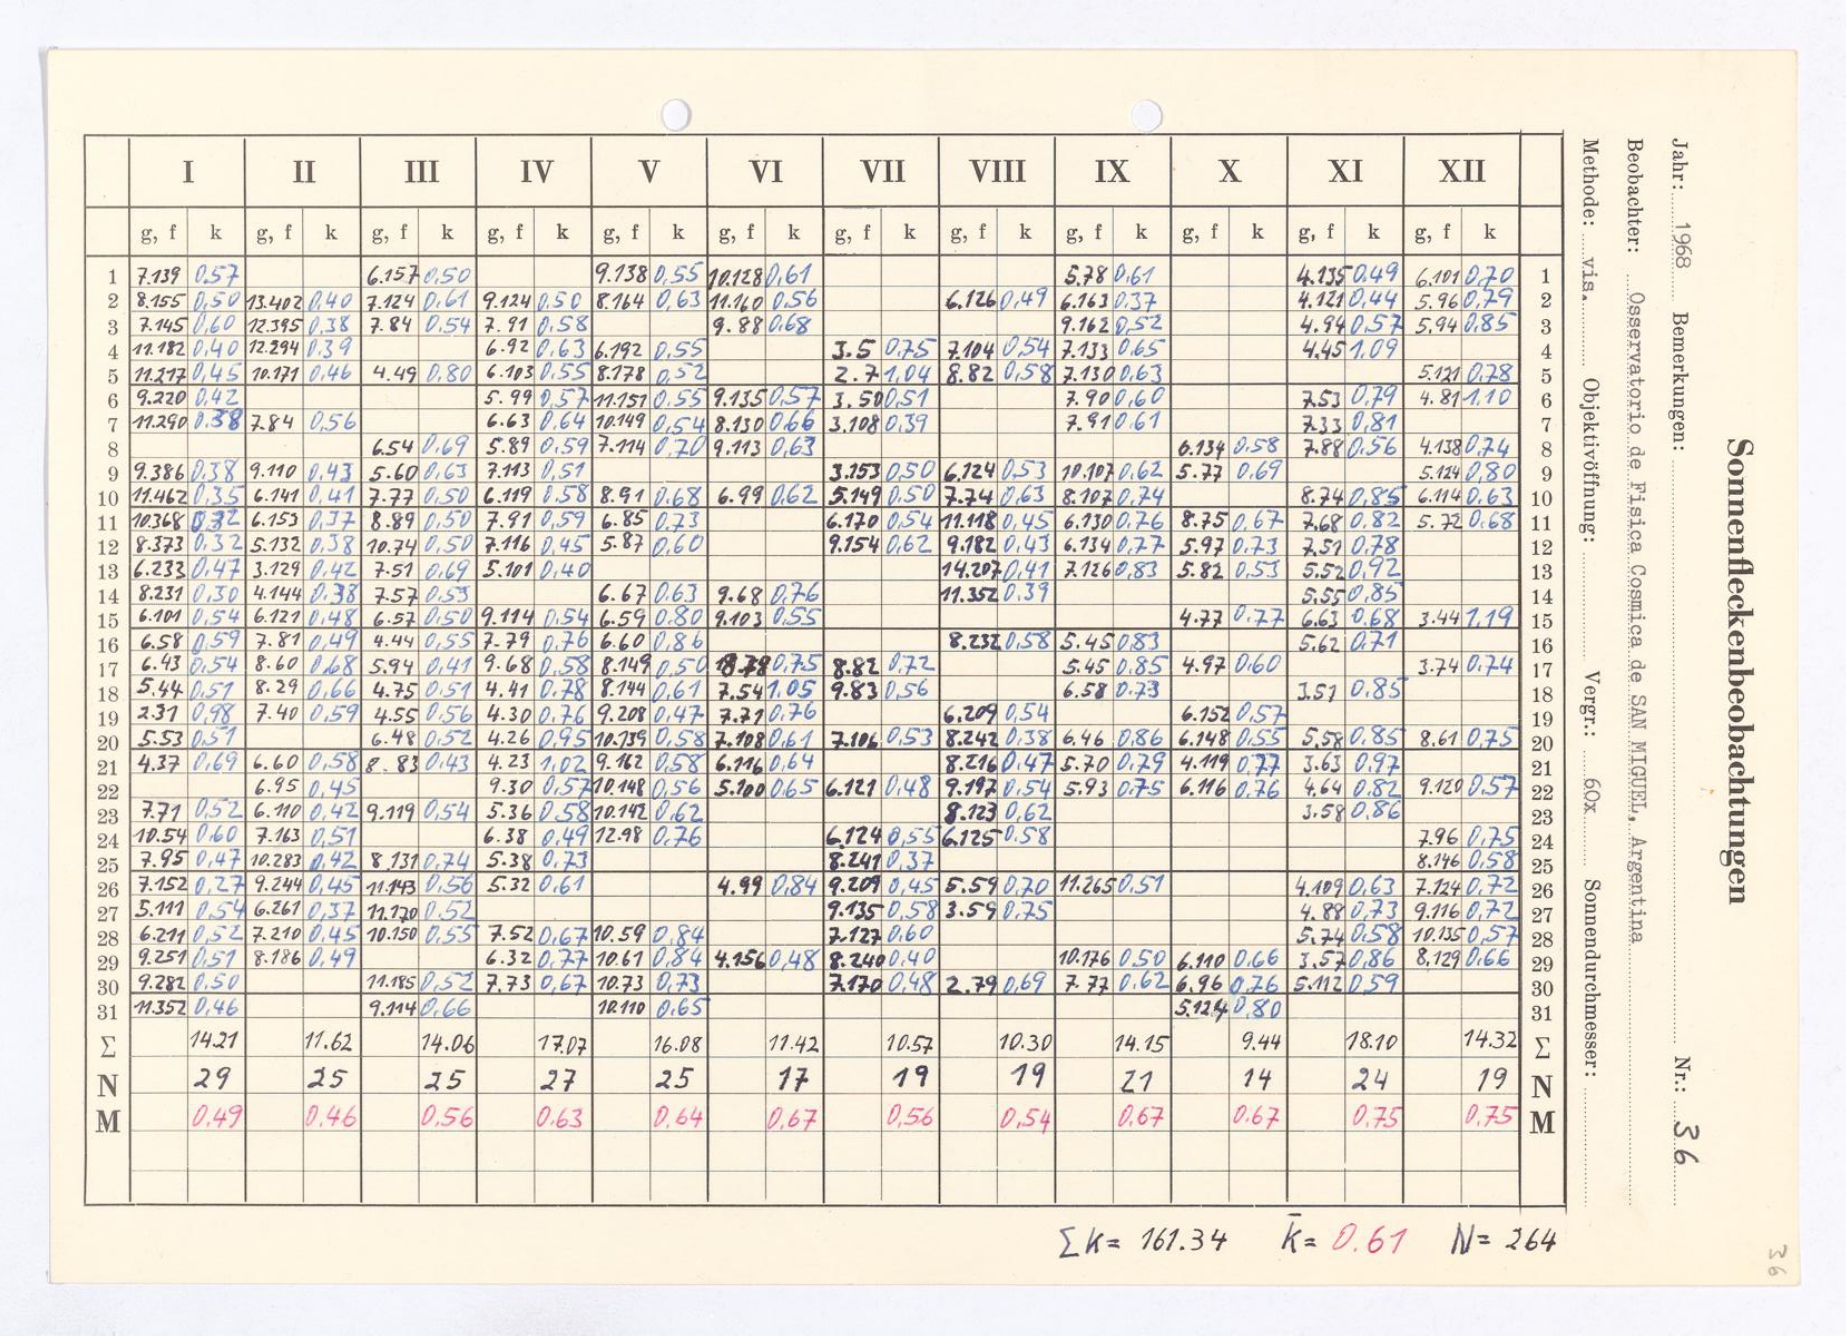 Sonnenfleckenbeobachtungen
Jahr: 1968 Bemerkungen: Nr.: 36
Beobachter: Osservatorio de Fisica Cosmica de SAN MIGUEL, Argentina
Methode: vis. Objektivöffnung: Vergr.: 60x Sonnendurchmesser:
I II III IV V VI VII VIII IX X XI XII
g, f k g, f k g, f k g, f k g, f k g, f k g, f k g, f k g, f k g, f k g, f k g, f k
1 7.139 0,57 6.157 0,50 9.138 0,55 10.128 0,61 5.78 0,61 4.135 0,49 6.101 0,70 1
2 8.155 0,50 13.402 0,40 7.124 0,61 9.124 0,50 8.164 0,63 11.160 0,56 6.126 0,49 6.163 0,37 4.121 0,44 5.96 0,79 2
3 7.145 0,60 12.395 0,38 7.84 0,54 7.91 0,58 9.88 0,68 9.162 0,52 4.94 0,57 5.94 0,85 3
4 11.182 0,40 12.294 0.39 6.92 0,63 6.192 0,55 3.5 0,75 7.104 0,54 7.133 0,65 4.45 1.09 4
5 11.217 0,45 10.171 0,46 4.49 0,80 6.103 0,55 8.178 0,52 2.7 1,04 8.82 0,58 7.130 0,63 5.121 0,78 5
6 9.220 0,42 5.99 0,57 11.151 0,55 9.135 0,57 3.50 0,51 7.90 0,60 7.53 0,79 4.81 1.10 6
7 11.290 0.38 7.84 0,56 6.63 0,64 10.149 0,54 8.130 0,66 3.108 0,39 7.91 0,61 7.33 0,81 7
8 6.54 0,69 5.89 0,59 7.114 0,70 9.113 0,63 6.134 0,58 7.88 0,56 4.138 0,74 8
9 9.386 0,38 9.110 0,43 5.60 0,63 7.113 0,51 3.153 0,50 6.124 0,53 10.107 0,62 5.77 0,69 5.124 0,80 9
10 11.462 0,35 6.141 0,41 7.77 0,50 6.119 0,58 8.91 0,68 6.99 0,62 5.149 0,50 7.74 0,63 8.107 0,74 8.74 0,85 6.114 0.63 10
11 10.368 0,32 6.153 0,37 8.89 0,50 7.91 0,59 6.85 0,73 6.170 0,54 11.118 0,45 6.130 0,76 8.75 0,67 7.68 0,82 5.72 0.68 11
12 8.373 0,32 5.132 0,38 10.74 0,50 7.116 0,45 5.87 0,60 9.154 0,62 9.182 0,43 6.134 0,77 5.97 0,73 7.51 0,78 12
13 6.233 0,47 3.129 0,42 7.51 0,69 5.101 0,40 14.207 0,41 7.126 0,83 5.82 0,53 5.52 0,92 13
14 8.231 0,30 4.144 0.38 7.57 0,53 6.67 0,63 9.68 0,76 11.352 0.39 5.55 0,85 14
15 6.101 0,54 6.121 0,48 6.57 0,50 9.114 0,54 6.59 0,80 9.103 0,55 4.77 0,77 6.63 0,68 3.44 1.19 15
16 6.58 0,59 7.81 0,49 4.44 0,55 7.79 0,76 6.60 0,86 8.232 0,58 5.45 0,83 5.62 0,71 16
17 6.43 0,54 8.60 0,68 5.94 0,41 9.68 0,58 8.149 0,50 0,75 8.82 0,72 5.45 0,85 4.97 0,60 3.74 0,74 17
18 5.44 0,51 8.29 0,66 4.75 0,51 4.41 0,78 8.144 0,61 7.54 1.05 9.83 0,56 6.58 0.73 3.51 0,85 18
19 2.31 0,98 7.40 0,59 4.55 0,56 4.30 0,76 9.208 0,47 7.71 0,76 6.209 0,54 6.152 0,57 19
20 5.53 0,51 6.48 0,52 4.26 0,95 10.139 0,58 7.108 0,61 7.106 0,53 8.242 0,38 6.46 0,86 6.148 0,55 5.58 0,85 8.61 0,75 20
21 4.37 0,69 6.60 0,58 8.83 0,43 4.23 1,02 9.162 0,58 6.116 0,64 8.216 0,47 5.70 0,79 4.119 0,77 3.63 0,97 21
22 6.95 0,45 9.30 0,57 10.148 0,56 5.100 0,65 6.121 0,48 9.197 0,54 5.93 0,75 6.116 0,76 4.64 0,82 9.120 0,57 22
23 7.71 0,52 6.110 0,42 9.119 0,54 5.36 0,58 10.142 0,62 8.123 0,62 3.58 0,86 23
24 10.54 0,60 7.163 0,51 6.38 0,49 12.98 0,76 6.124 0,55 6.125 0.58 7.96 0,75 24
25 7.95 0,47 10.283 0,42 8.131 0,74 5.38 0,73 8.241 0,37 8.146 0,58 25
26 7.152 0,27 9.244 0,45 11.143 0,56 5.32 0,61 4.99 0,84 9.209 0,45 5.59 0,70 11.265 0,51 4.109 0,63 7.124 0,72 26
27 5.111 0,54 6.261 0,37 11.170 0,52 9.135 0,58 3.59 0,75 4.88 0,73 9.116 0,72 27
28 6.211 0,52 7.210 0,45 10.150 0,55 7.52 0,67 10.59 0,84 7.127 0,60 5.74 0,58 10.135 0,57 28
29 9.251 0,51 8.186 0,49 6.32 0,77 10.61 0,84 4.156 0,48 8.240 0,40 10.176 0,50 6.110 0,66 3.57 0,86 8,129 0,66 29
30 9.282 0,50 11.185 0,52 7.73 0,67 10.73 0,73 7.170 0,48 2.79 0,69 7.77 0,62 6.96 0,76 5.112 0,59 30
31 11.352 0,46 9.114 0,66 10.110 0,65 5.124 0,80 31
Σ 14.21 11.62 14.06 17.07 16.08 11.42 10.57 10.30 14.15 9.44 18.10 14.32 Σ
N 29 25 25 27 25 17 19 19 21 14 24 19 N
M 0,49 0,46 0,56 0,63 0,64 0,67 0,56 0,54 0,67 0.67 0,75 0,75 M
Σk = 161.34 k̄ = 0.61 N = 264
36